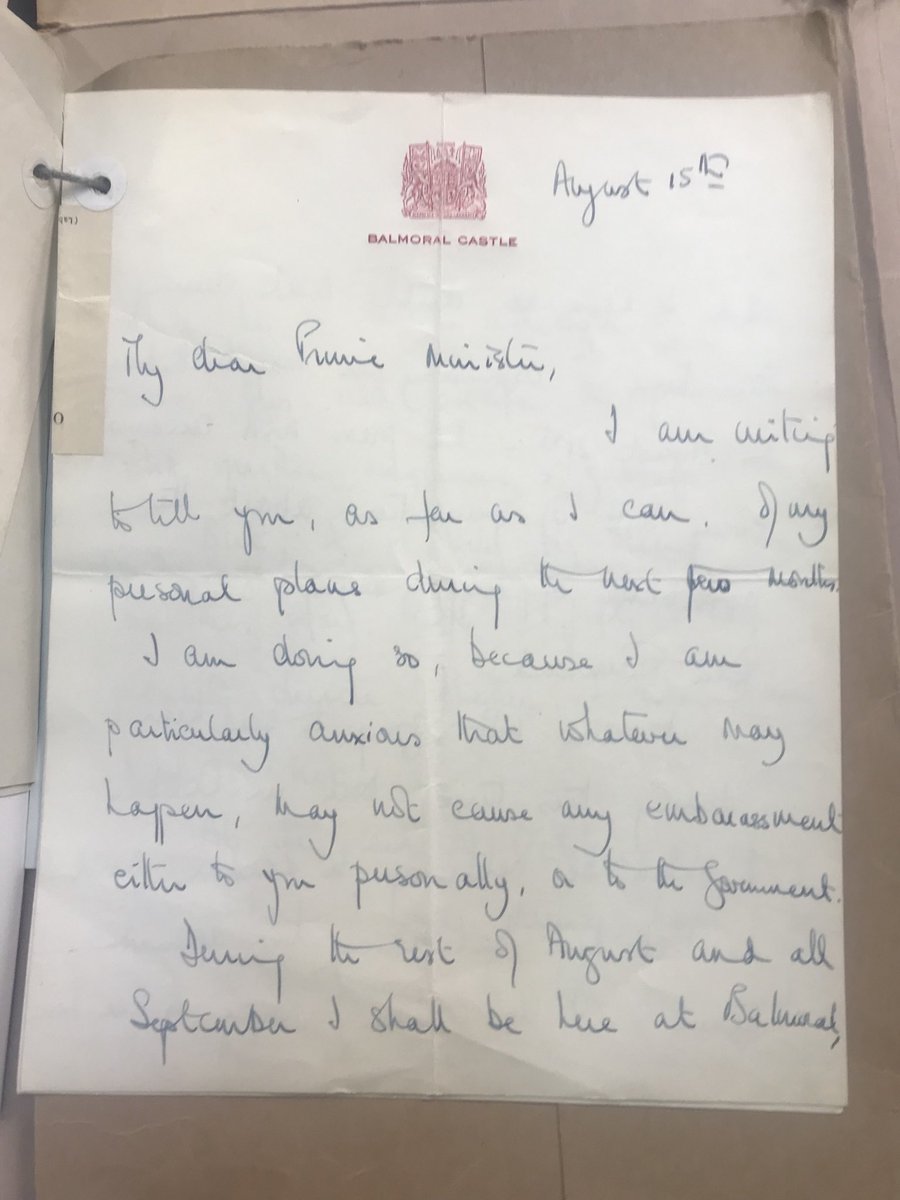 August 15th
BALMORAL CASTLE
My dear Prime Minister,
I am writing
to tell you, as far as I can, of my
personal plans during the next few months.
I am doing so, because I am
particularly anxious that whatever may
happen, may not cause any embarassment
either to you personally, or to the Government.
During the rest of August and all
September I shall be here at Balmoral,
O